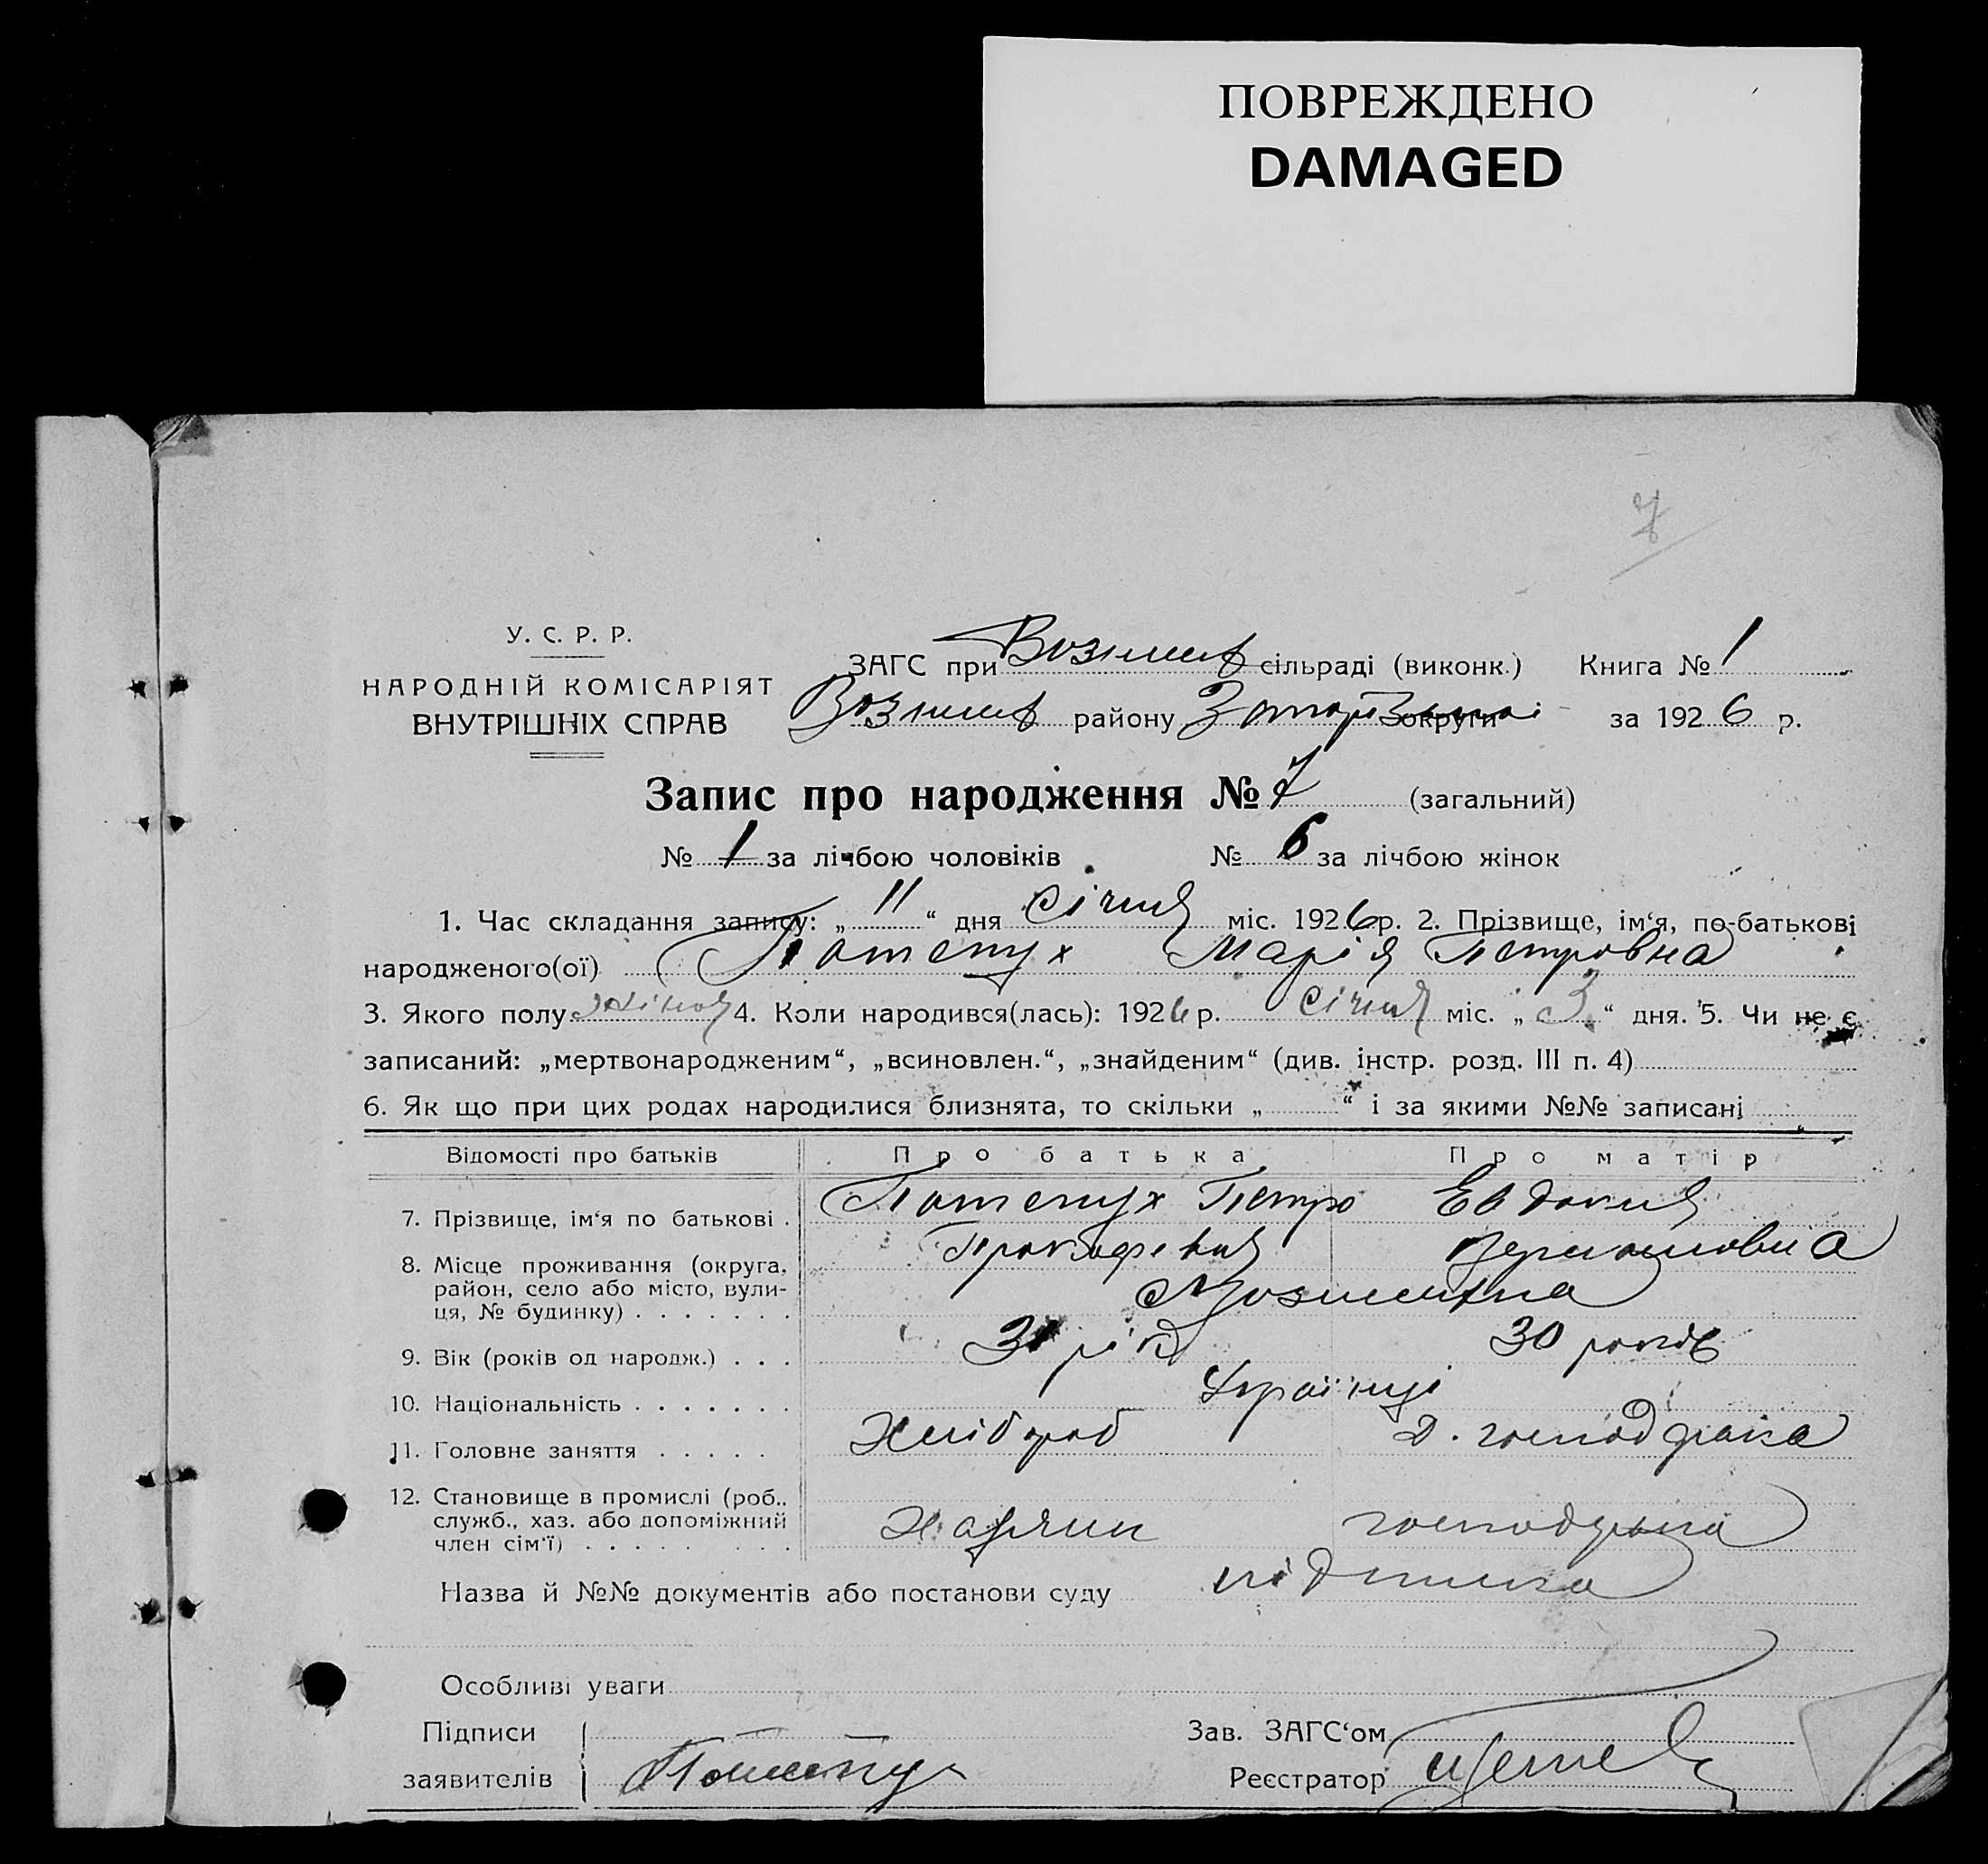 ПОВРЕЖДЕНО
DAMAGED
7
У. С. Р. Р.
НАРОДНІЙ КОМІСАРІЯТ
ВНУТРІШНІХ СПРАВ
ЗАГС при сільраді (виконк.) Книга № 1
району округи за 1926 р.
Запис про народження № 7 (загальний)
№ 1 за лічбою чоловіків № 6 за лічбою жінок
1. Час складання запису: „11“ дня Січня міс. 1926 р. 2. Прізвище, ім‘я, по-батькові
народженого(ої) Потепух Марія Петровна
3. Якого полу жіноч 4. Коли народився(лась): 1926 р. Січня міс. „3“ дня. 5. Чи не є
записаний: „мертвонародженим“, „всиновлен.“, „знайденим“ (див. інстр. розд. III п. 4)
6. Як що при цих родах народилися близнята, то скільки „ “ і за якими №№ записані
Відомості про батьків Про батька Про матір
7. Прізвище, ім‘я по батькові . Потепух Петро Евдокия
Прокофіевич
8. Місце проживання (округа, район, село або місто, вулиця, № будинку) . . . . . . .
9. Вік (років од народж.) . . . 31 рік 30 років
10. Національність . . . . . . . Українці
11. Головне заняття . . . . . Хлібороб д. господарка
12. Становище в промислі (роб., служб., хаз. або допоміжний член сім‘ї) . . . . . . . . Хазяин господарка
Назва й №№ документів або постанови суду підписка
Особливі уваги
Підписи
заявителів Потепух
Зав. ЗАГС‘ом
Реєстратор